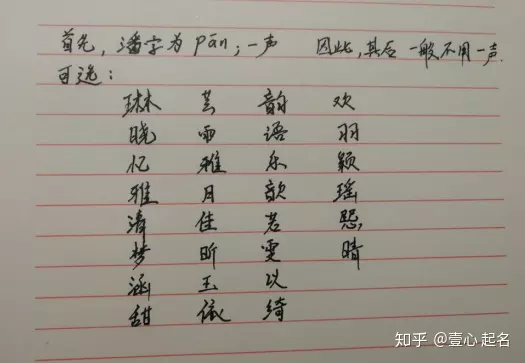 首先，潘字为 Pān；一声 因此，其后一般不用一声.
可选：
琳 芸 韵 欢
晓 雨 语 羽
忆 雅 乐 颖
雅 月 歆 瑶
清 佳 若 熙
梦 昕 雯 晴
涵 玉 以
甜 依 绮
知乎 @壹心起名